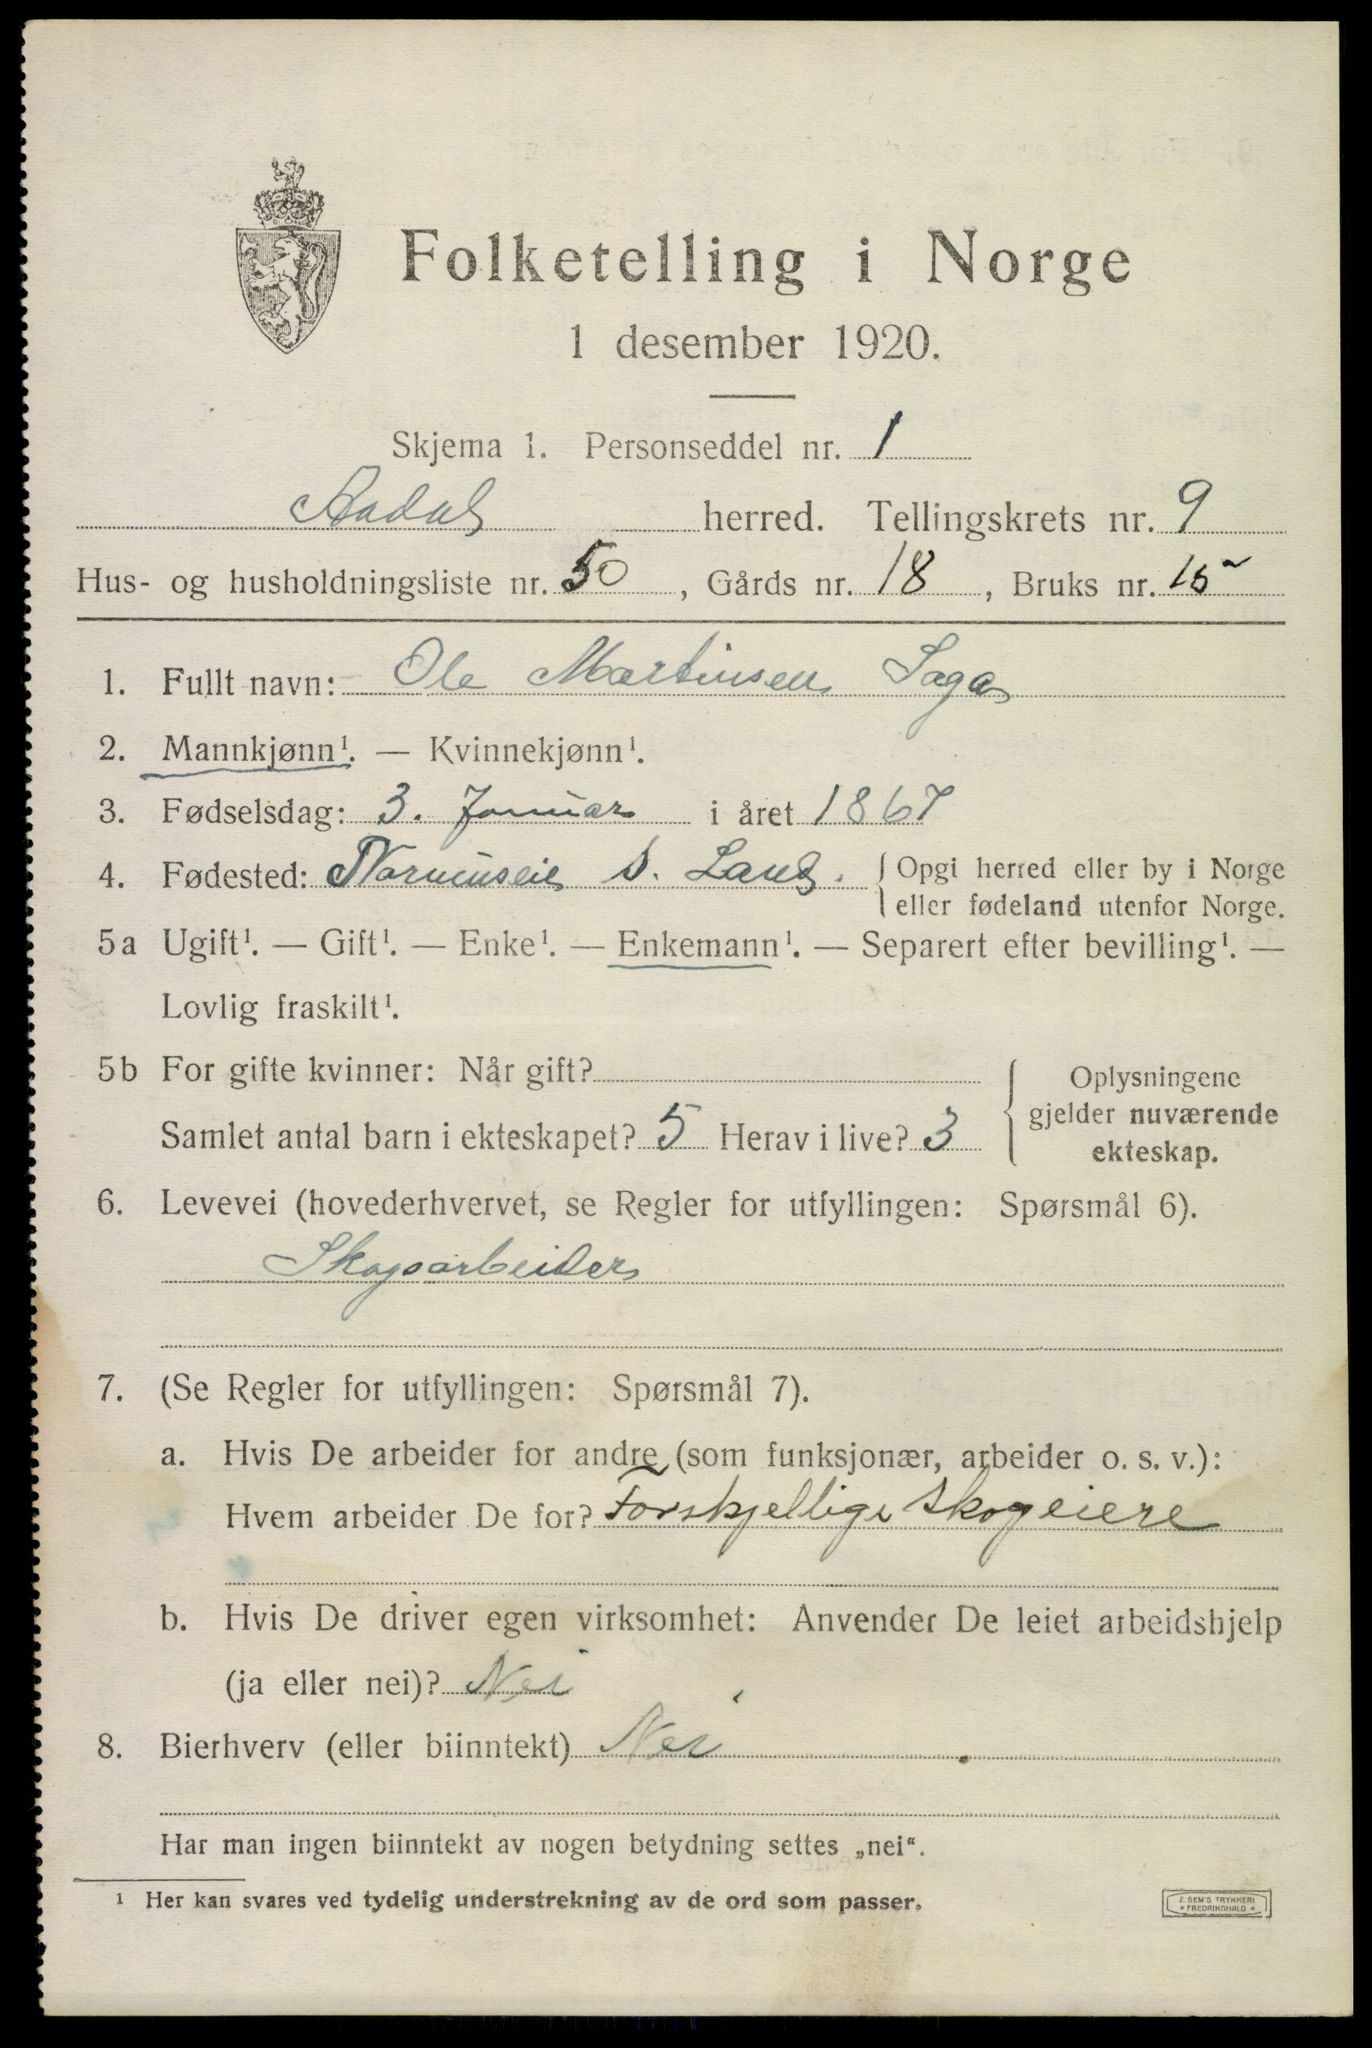 Folketelling i Norge
1 desember 1920.
Skjema 1. Personseddel nr. 1
Aadal herred. Tellingskrets nr. 9
Hus- og husholdningsliste nr. 50, Gårds nr. 18, Bruks nr. 15
1. Fullt navn: Ole Martinsen Saga
2. Mannkjønn¹. — Kvinnekjønn¹.
3. Fødselsdag: 3. Januar i året 1867
4. Fødested: S. Land. { Opgi herred eller by i Norge
eller fødeland utenfor Norge.
5a Ugift¹. — Gift¹. — Enke¹. — Enkemann¹. — Separert efter bevilling¹. —
Lovlig fraskilt¹.
5b For gifte kvinner: Når gift?
Samlet antal barn i ekteskapet? 5 Herav i live? 3
Oplysningene
gjelder nuværende
ekteskap.
6. Levevei (hovederhvervet, se Regler for utfyllingen: Spørsmål 6).
Skogsarbeider
7. (Se Regler for utfyllingen: Spørsmål 7).
a. Hvis De arbeider for andre (som funksjonær, arbeider o. s. v.):
Hvem arbeider De for? Forskjellige skogeiere
b. Hvis De driver egen virksomhet: Anvender De leiet arbeidshjelp
(ja eller nei)? Nei
8. Bierhverv (eller biinntekt) Nei
Har man ingen biinntekt av nogen betydning settes „nei“.
¹ Her kan svares ved tydelig understrekning av de ord som passer.
E. SEM'S TRYKKERI
* FREDRIKSHALD *